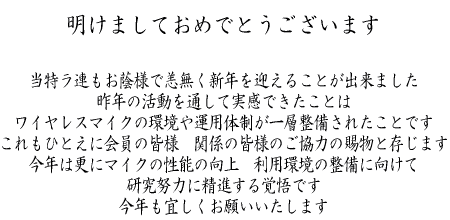 明けましておめでとうございます
当特ラ連もお陰様で恙無く新年を迎えることが出来ました
昨年の活動を通して実感できたことは
ワイヤレスマイクの環境や運用体制が一層整備されたことです
これもひとえに会員の皆様　関係の皆様のご協力の賜物と存じます
今年は更にマイクの性能の向上　利用環境の整備に向けて
研究努力に精進する覚悟です
今年も宜しくお願いいたします